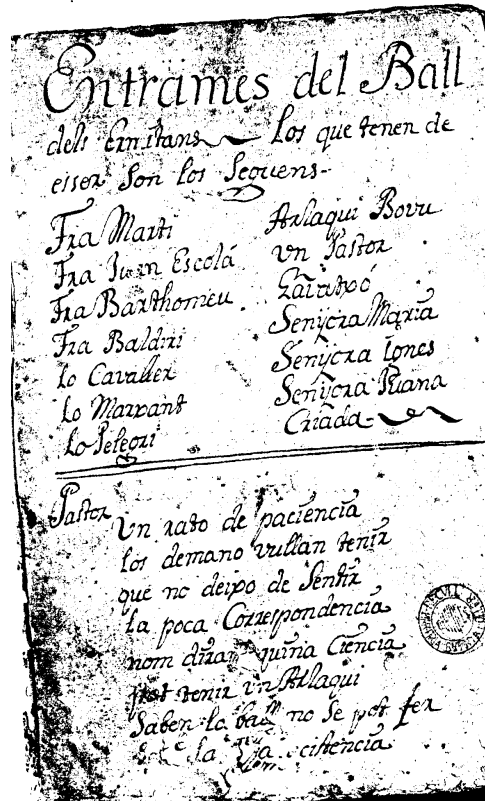 Entrames del Ball
dels Ermitans Los que tenen de
esser Son los Seguens-
Fra Marti
Fra Juan Escolá
Fra Barthomeu
Fra Baldiri
Lo Cavaller
Lo Marxant
Lo Pelegri
Arlaqui Bovu
Un Pastor
Senyora Maria
Senyora Ignes
Senyora Riana
Criada-
Pastor
Un rato de paciencia
los demano vullan tenir
que no deixo de Sentir
la poca Correspondencia
nom diran quina Ciencia
pot tenir Un Arlaqui
Saben lo ball no Se pot fer
la